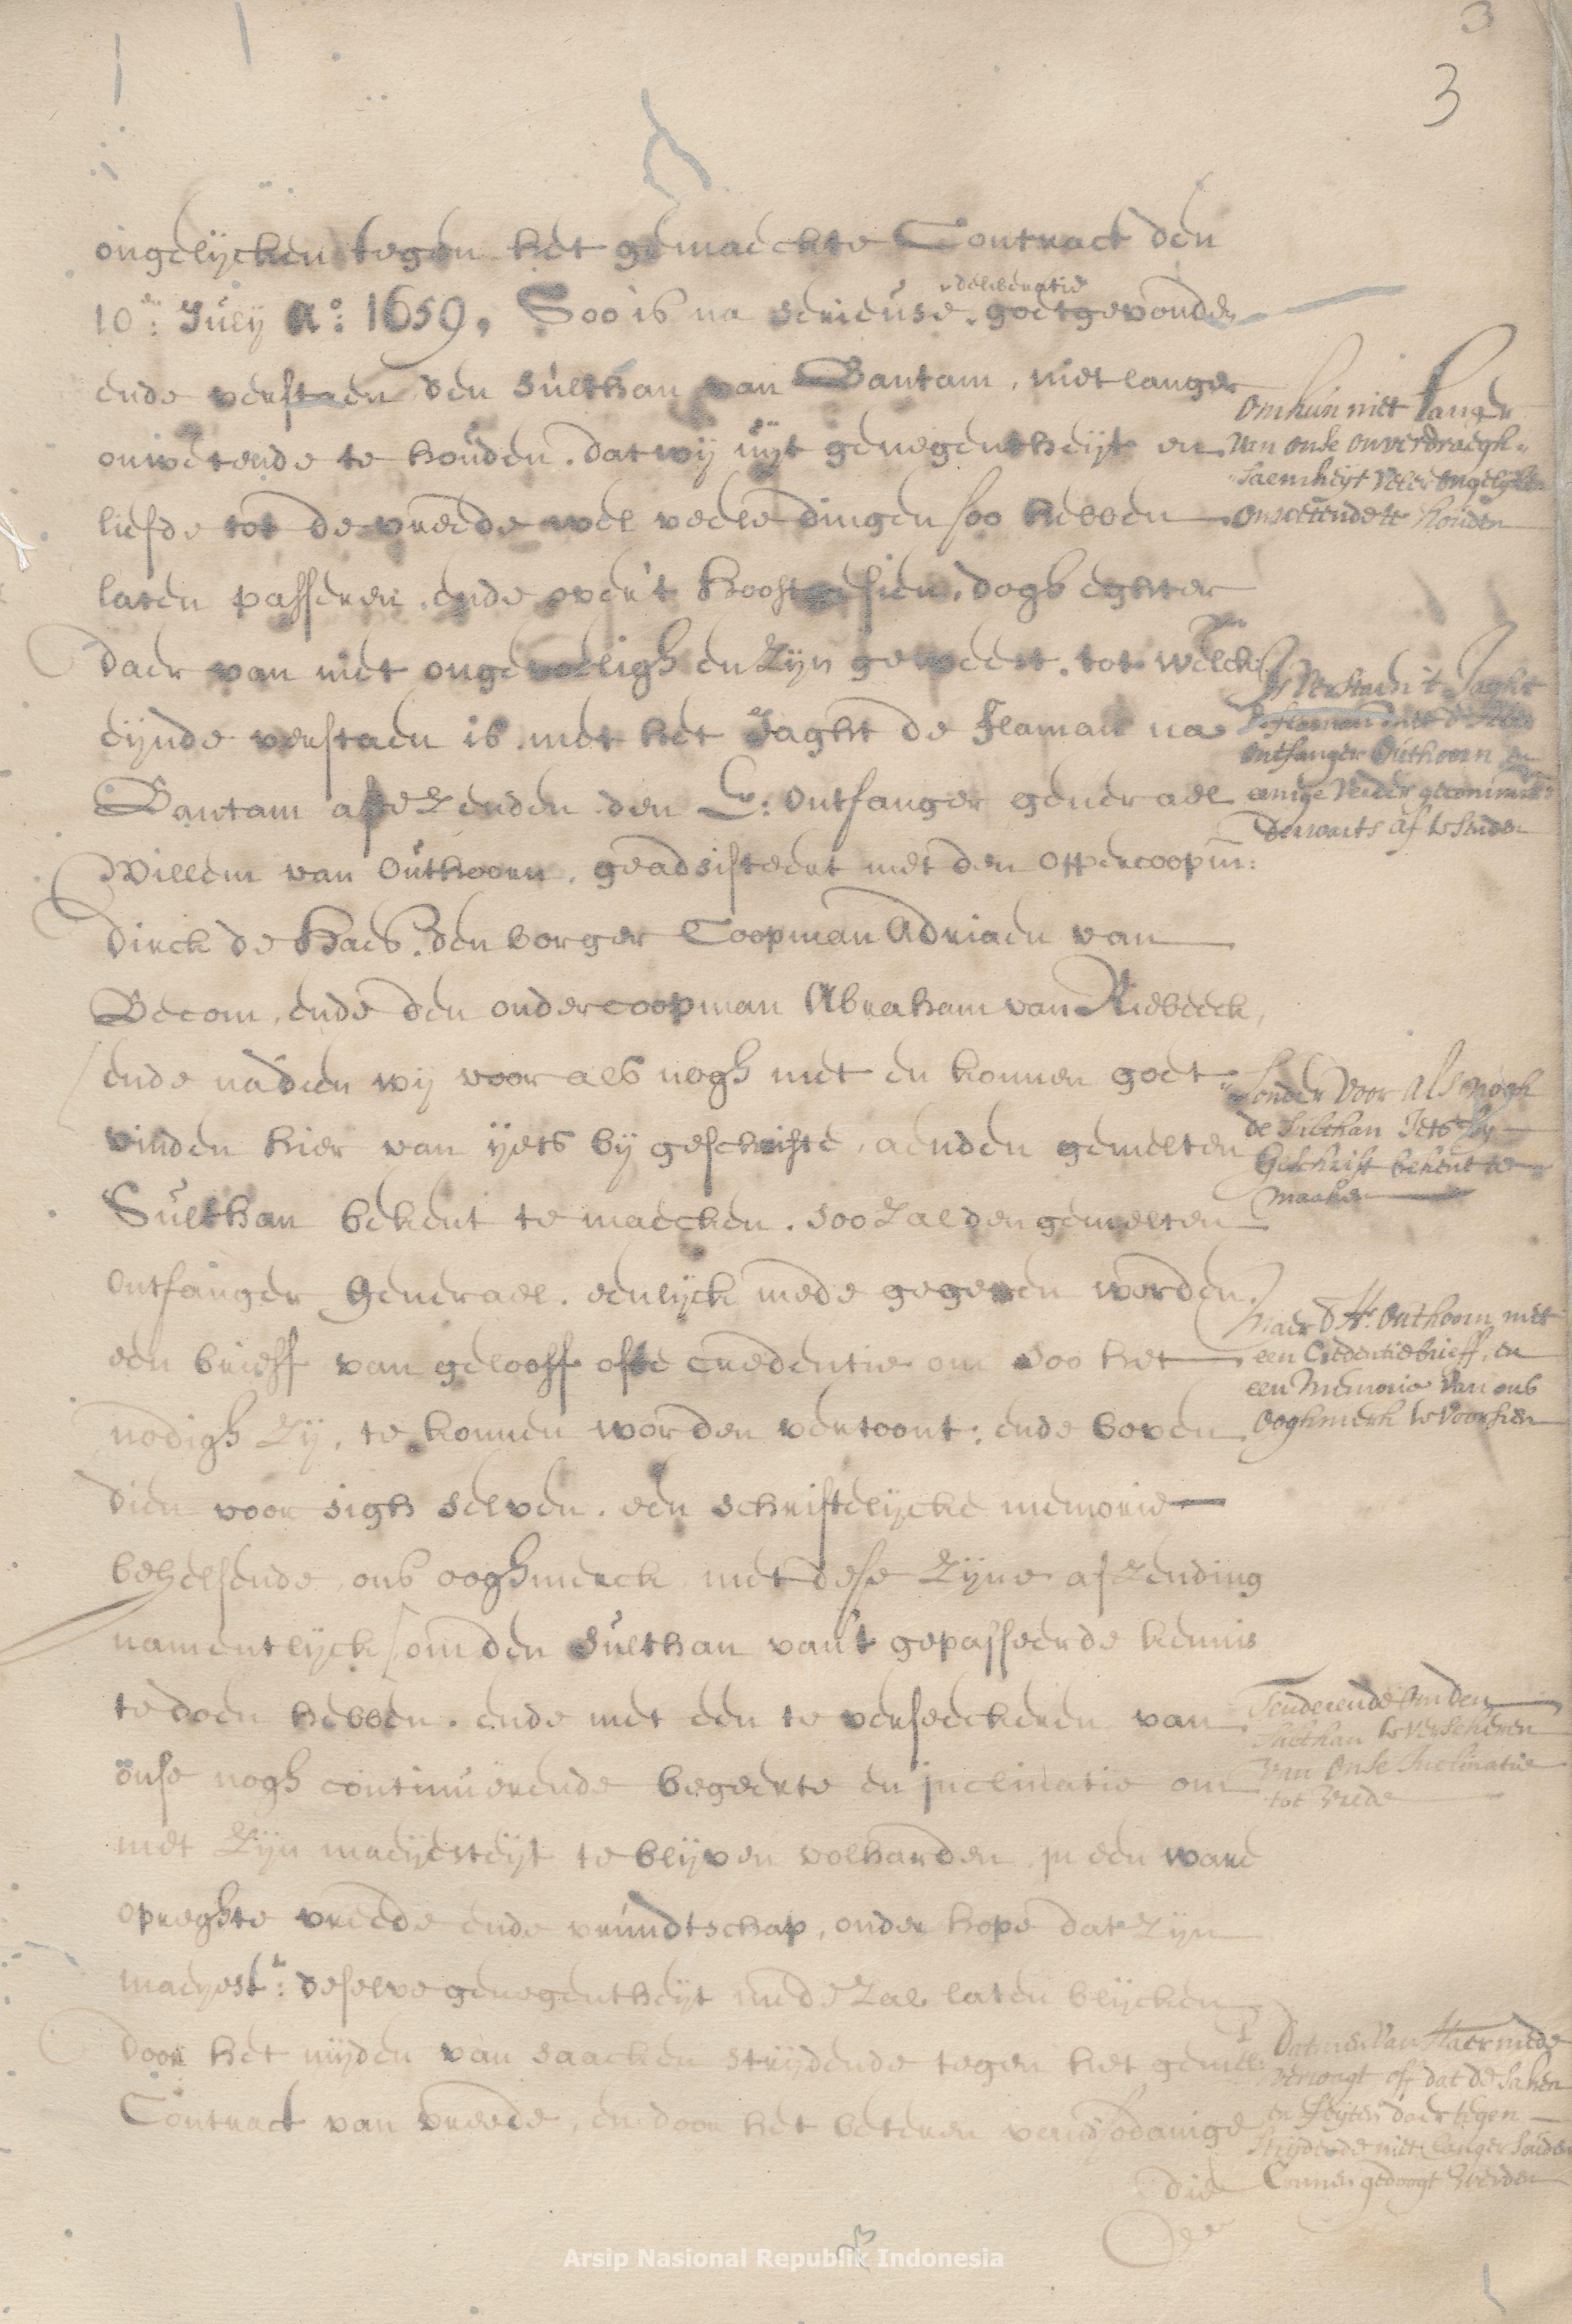 3
3
ongelijcken tegen het gemaeckte Contract den
10:en Julij Ao: 1659, Soo is na serieuse deliberatie goetgevonden
ende verstaen den Sulthan van Bantam, niet langer
onwetende te houden, dat wij uijt genegentheijt en
liefde tot de vreede wel veele dingen soo hebben
laten passeren, ende over't hooft gesien, dogh eghter
daer van niet ongevoeligh en zijn geweest, tot welcken
eijnde verstaen is met het Jaght de Flaman na
Bantam aff te zenden den E: Ontfanger generael
Willem van Outhoorn, geadsisteert met den oppercoopm:
Dirck de Haes, den borger Coopman Adriaen van
Becom, ende den ondercoopman Abraham van Riebeeck,
ende nadien wij voor als nogh niet en konnen goet
vinden hier van ijets bij geschrifte, aenden gemelten
Sulthan bekent te maecken, soo zal den gemelten
Ontfanger Generael, eenlijck mede gegeven worden
een brieff van gelooff ofte credentie om soo het
nodigh zij, te konnen worden vertoont; ende boven
dien voor sigh selven, een schriftelijcke memorie
behelsende, ons ooghmerck met dese zijne afzending
namentlijck, om den Sulthan van't gepasseerde kennis
te doen hebben, ende met een te verseeckeren van
onse nogh continuerende begeerte en inclinatie om
met zijn maeijesteijt te blijven volharden, in een ware
opreghte vreede ende vrundtschap, onder hope dat zijn
maeijest:t deselve genegentheijt mede zal laten blijcken
door het mijden van saacken strijdende tegen het gemel:
Contract van vreede, en door het beteren van sodanige
die
Om hun niet langer
van onse onverdraegh-
saemheijt veler ongelijken
onwetende te houden
Is verstaen 't Jaght
de Flaman met d'Heer
ontfanger Outhoorn en
eenige verder gecommitt:
derwarts af te senden
sonder voor als nogh
de Sulthan Iets by
Geschrift bekent te
maaken
maar d'Hr. Outhoorn met
een Credentie brieff, en
een Memorie van ons
ooghmerk te voorsien
Tenderende om den
Sulthan te verseekeren
van onse Inclinatie
tot vrede
Dat men van Haer mede
verwagt off dat de saken
en feijten daer tegen
strijdende niet langer souden
Connen gedoogt werden
Arsip Nasional Republik Indonesia